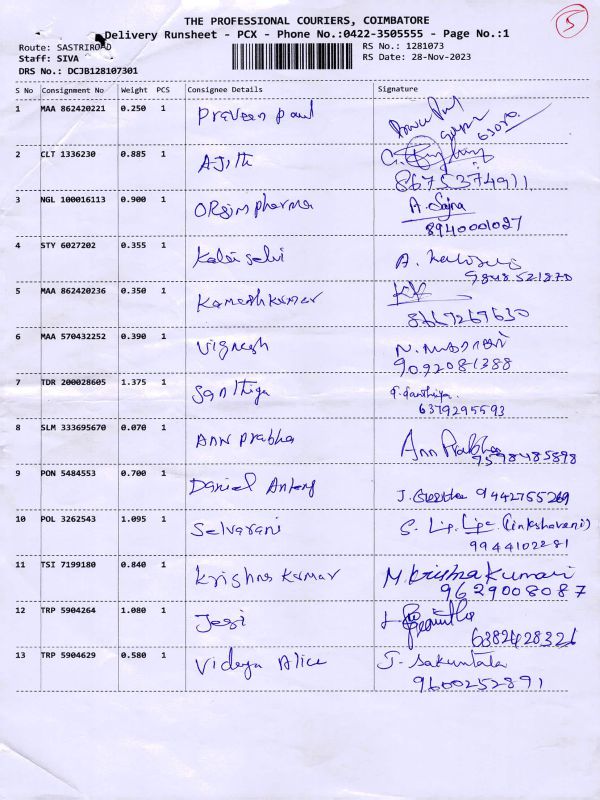 THE PROFESSIONAL COURIERS, COIMBATORE
5
Delivery Runsheet - PCX - Phone No.:0422-3505555 - Page No.:1
Route: SASTRIROAD
RS No.: 1281073
Staff: SIVA
RS Date: 28-Nov-2023
DRS No.: DCJB128107301
S No Consignment No Weight PCS Consignee Details Signature
1 MAA 862420221 0.250 1 Praveen paul
2 CLT 1336230 0.885 1 Ajith
8675374911
3 NGL 100016113 0.900 1 ORgin pharma A. Sajna
8940001027
4 STY 6027202 0.355 1 Kalai selvi A.
9848521870
5 MAA 862420236 0.350 1 Kameshkumar KK
8667267630
6 MAA 570432252 0.390 1 Vignesh N.
9092081388
7 TDR 200028605 1.375 1 Santhiya
6379295593
8 SLM 333695670 0.070 1 ANN Prabha Ann Prabha
9598485898
9 PON 5484553 0.700 1 Daniel Antony J. 9442755269
10 POL 3262543 1.095 1 Selvarani S.
9944102281
11 TSI 7199180 0.840 1 Krishna Kumar M. Krishna Kumari
9629008087
12 TRP 5904264 1.080 1 Jesi
6382428326
13 TRP 5904629 0.580 1 Vidhya Alice J. Sakuntala
9600252891